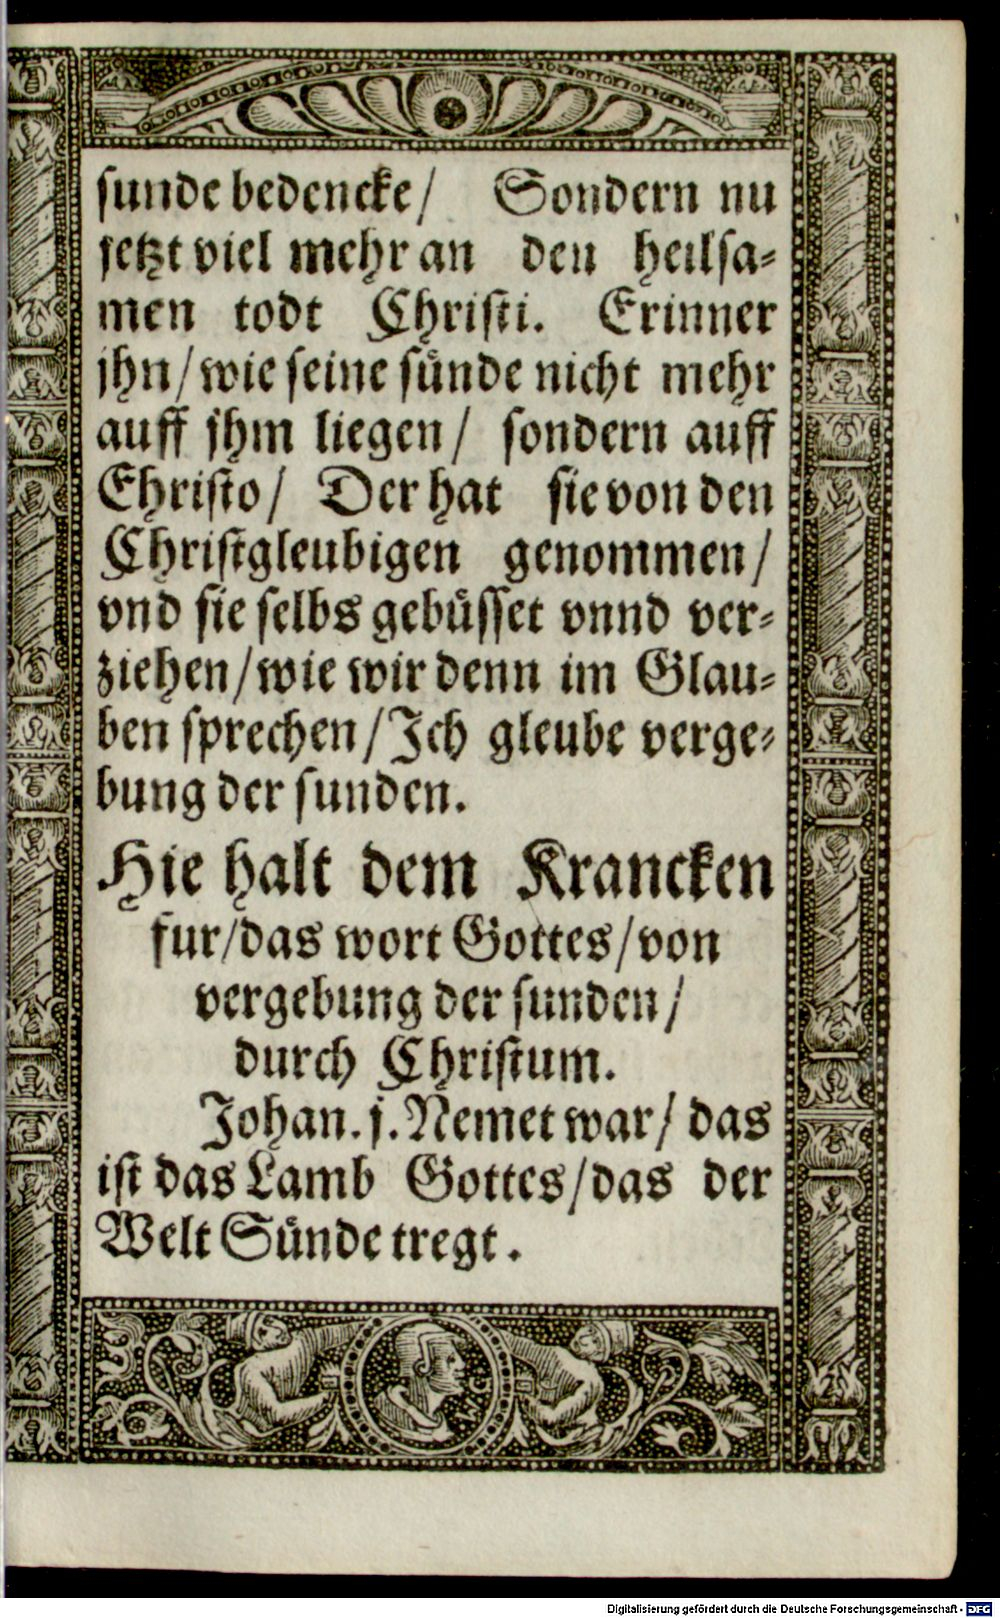 sunde bedencke/ Sondern nu
jetzt viel mehr an den heilsa⸗
men todt Christi. Erinner
jhn/ wie seine sůnde nicht mehr
auff jhm liegen/ sondern auff
Christo/ Der hat sie von den
Christgleubigen genommen/
vnd sie selbs gebůsset vnnd ver⸗
ziehen/ wie wir denn im Glau⸗
ben sprechen/ Ich gleube verge⸗
bung der sunden.
Hie halt dem Krancken
fur/ das wort Gottes/ von
vergebung der sunden/
durch Christum.
Johan. j. Nemet war/ das
ist das Lamb Gottes/ das der
Welt Sůnde tregt.
Digitalisierung gefördert durch die Deutsche Forschungsgemeinschaft - DFG